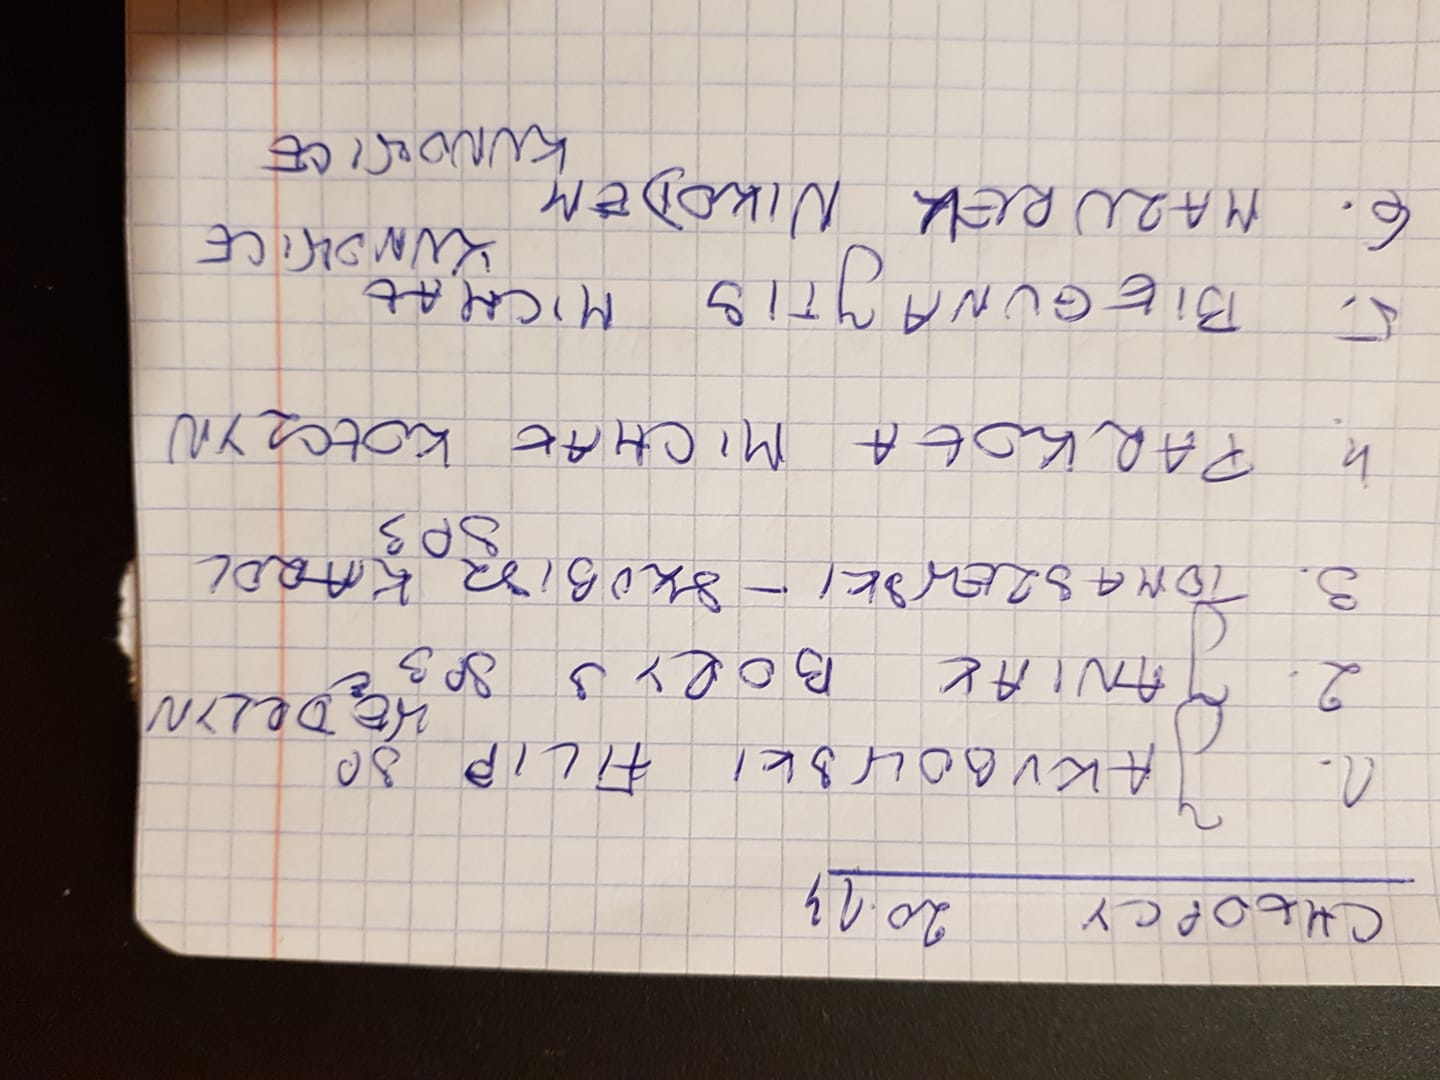 CHŁOPCY 2014
1. JAKUBOWSKI FILIP SP
KĘDRZYN
2. JANIAK BORYS SP3
3. TOMASZEWSKI - SKUBISZ KAROL
SP3
4. PARKOŁA MICHAŁ KOŁCZYN
5. BIEGUNAJTIS MICHAŁ
6. MAZUREK NIKODEM